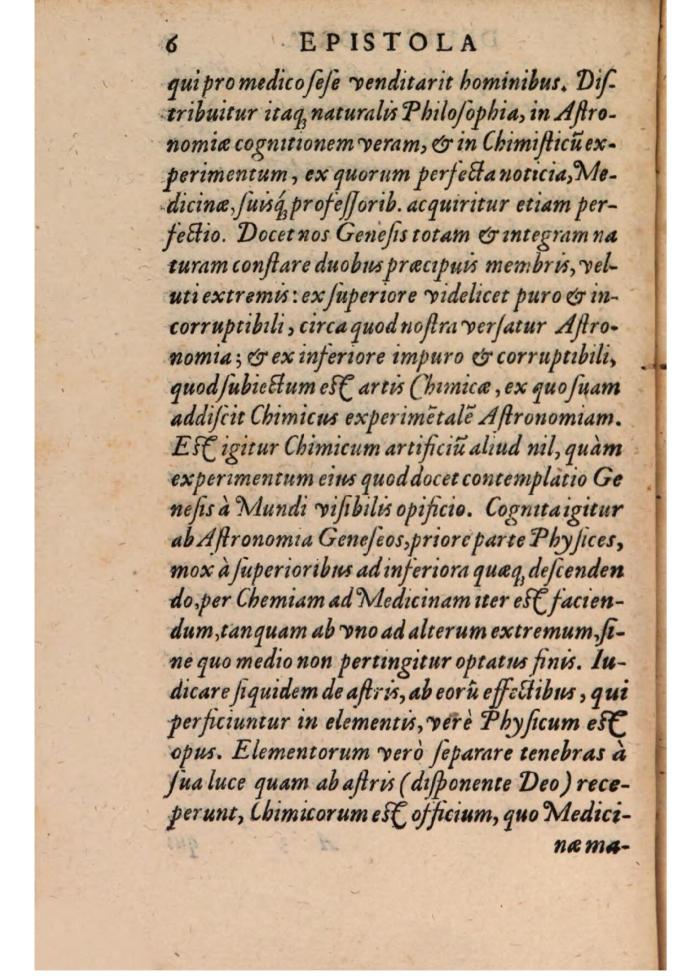 6 EPISTOLA
qui pro medico ſeſe venditarit hominibus. Diſ-
tribuitur itaq; naturalis Philoſophia, in Aſtro-
nomiæ cognitionem veram, & in Chimiſticũ ex-
perimentum, ex quorum perfecta noticia, Me-
dicinæ, ſuisq́; profeſſorib. acquiritur etiam per-
fectio. Docet nos Geneſis totam & integram na
turam conſtare duobus præcipuis membris, vel-
uti extremis: ex ſuperiore videlicet puro & in-
corruptibili, circa quod noſtra verſatur Aſtro-
nomia; & ex inferiore impuro & corruptibili,
quod ſubiectum eſt artis Chimicæ, ex quo ſuam
addiſcit Chimicus experimẽtalẽ Aſtronomiam.
Eſt igitur Chimicum artificiũ aliud nil, quàm
experimentum eius quod docet contemplatio Ge
neſis à Mundi viſibilis opificio. Cognita igitur
ab Aſtronomia Geneſeos, priore parte Phyſices,
mox à ſuperioribus ad inferiora quæq; deſcenden
do, per Chemiam ad Medicinam iter eſt facien-
dum, tanquam ab vno ad alterum extremum, ſi-
ne quo medio non pertingitur optatus finis. Iu-
dicare ſiquidem de aſtris, ab eorũ effectibus, qui
perficiuntur in elementis, verè Phyſicum eſt
opus. Elementorum verò ſeparare tenebras à
ſua luce quam ab aſtris (diſponente Deo) rece-
perunt, Chimicorum eſt officium, quo Medici-
næ ma-